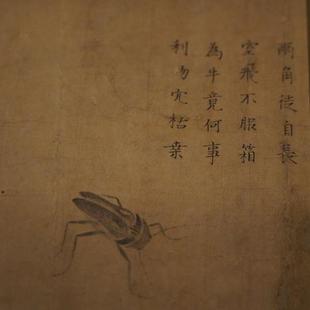 兩角徒自長
空飛不服箱
為牛竟何事
利吻穴枯桑